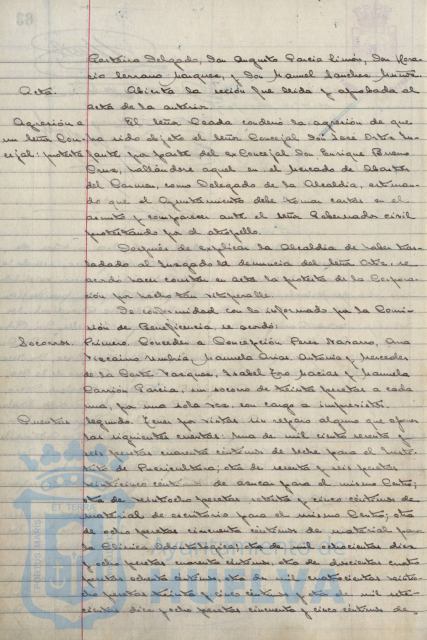 Gastório Delgado, don Augusto García Limón, don Hora-
cio Serrano Marquez, y don Manuel Sanchez Muñoz.
Acta. Abierta la sesión fue leida y aprobada el
acta de la anterior.
Agresión a El señor Ceada condenó la agresión de que
un señor Con- ha sido objeto el señor Concejal don José Ortiz In-
cejal: protesta fante por parte del ex Concejal don Enrique Bueno
Cruz, hallándose aquel en el Mercado de Abastos
del Carmen, como Delegado de la Alcaldía, estiman-
do que el Ayuntamiento debe tomar cartas en el
asunto y comparecer ante el señor Gobernador civil
protestando por el atropello.
Después de explicar la Alcaldía de haber tras-
ladado al Juzgado la denuncia del señor Ortiz, se
acordó hacer constar en acta la protesta de la Corpora-
ción por hecho tan vituperable.
De conformidad con lo informado por la Comi-
sión de Beneficencia, se acordó:
Socorros. Primero. Conceder a Concepción Perez Navarro, Ana
Vizcaino Umbria, Manuela Arias Antonio y Mercedes
de la Corte Vazquez, Isabel Macias y Manuela
Carrión García, un socorro de treinta pesetas a cada
una, por una sola vez, con cargo a imprevistos.
Cuentas. Segundo. Tener por vistas sin reparo alguno que oponer
las siguientes cuentas: Una de mil ciento sesenta y
seis pesetas cuarenta céntimos de leche para el Insti-
tuto de Puericultura; otra de sesenta y seis pesetas
veinticinco céntimos de azucar para el mismo Centro;
otra de veintiocho pesetas setenta y cinco céntimos de
material de escritorio para el mismo Centro; otra
de ocho pesetas cincuenta céntimos de material para
la Clínica Odontológica; otra de mil ochocientas diez
y ocho pesetas cuarenta céntimos, otra de doscientas cuatro
pesetas ochenta céntimos, otra de mil cuatrocientas veintio-
cho pesetas treinta y cinco céntimos y otra de mil sete-
cientas diez y ocho pesetas cincuenta y cinco céntimos de
Ayuntamiento de
HUELVA